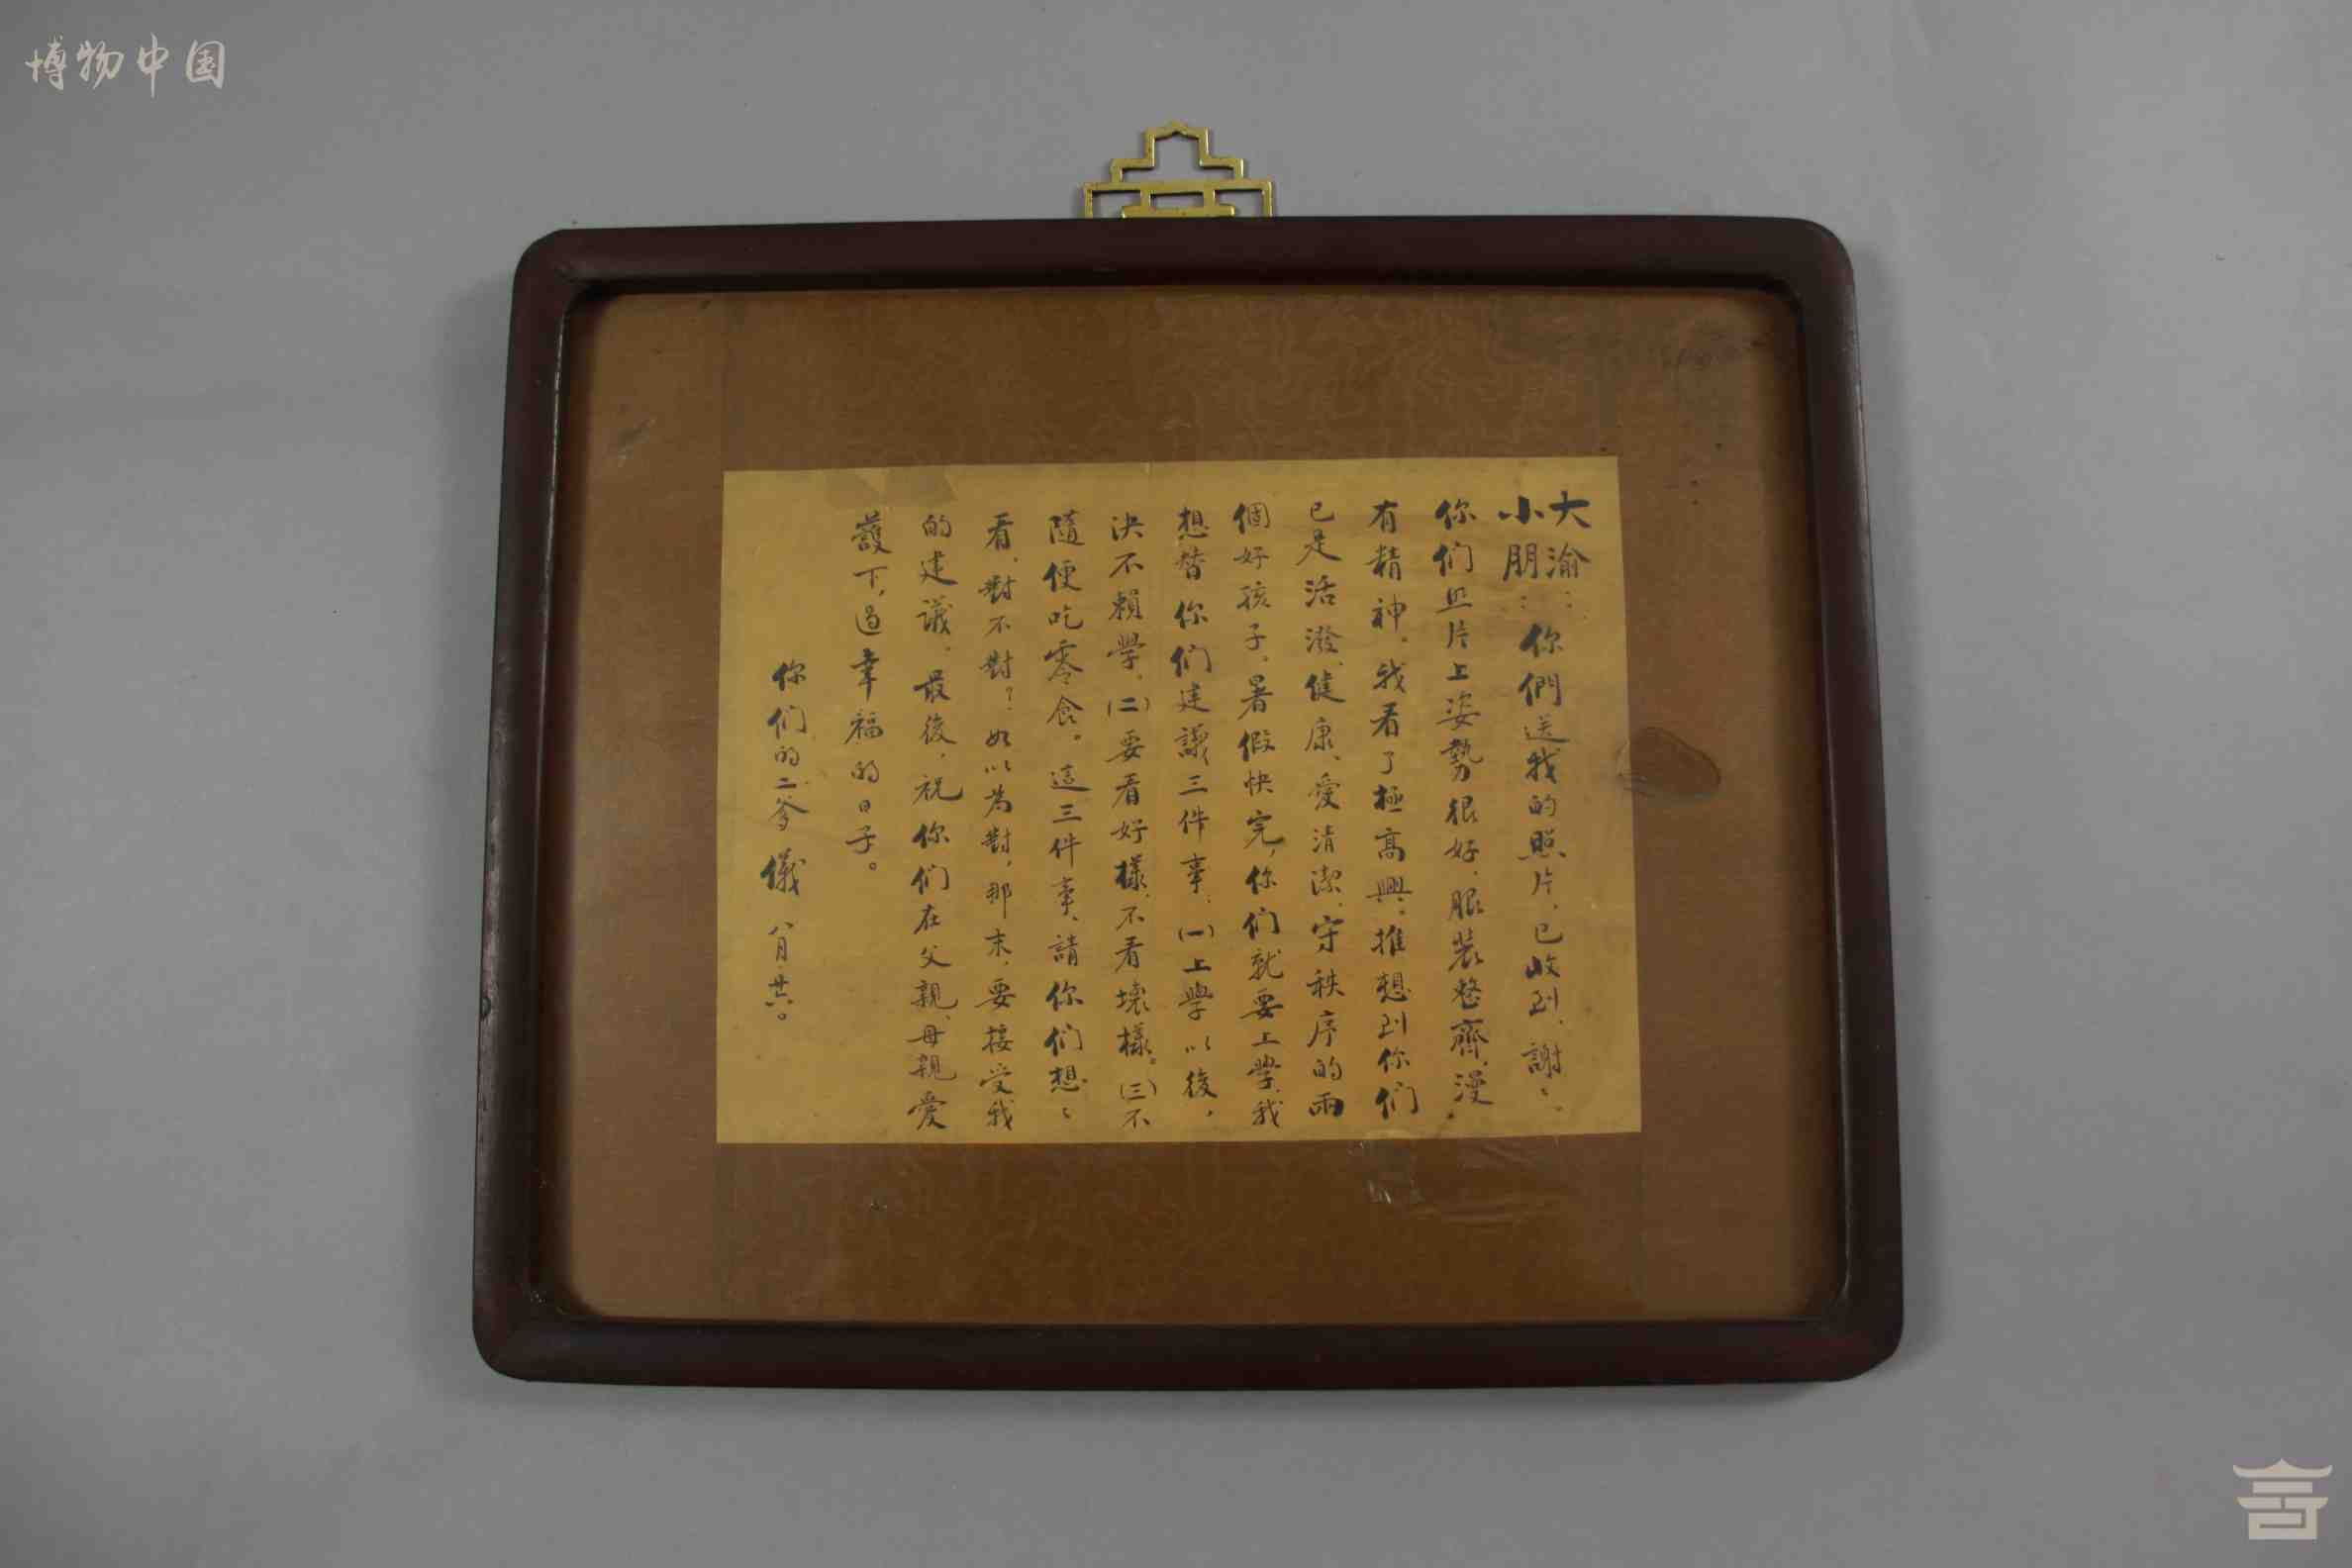 博物中国
大渝
小朋:你們送我的照片,已收到,謝〻,
你们照片上姿勢很好,服装整齊,漫
有精神。我看了極高興。推想到你们
已是活潑、健康、愛清潔、守秩序的兩
個好孩子。暑假快完,你们就要上學,我
想替你们建議三件事:(一)上學以後,
決不賴學。(二)要看好樣,不看壞樣。(三)不
隨便吃零食。這三件事,請你们想〻
看,對不對?如以为對,那末,要接受我
的建議。最後,祝你们在父親、母親愛
護下,过幸福的日子。
你们的二爹 儀 八月廿六。